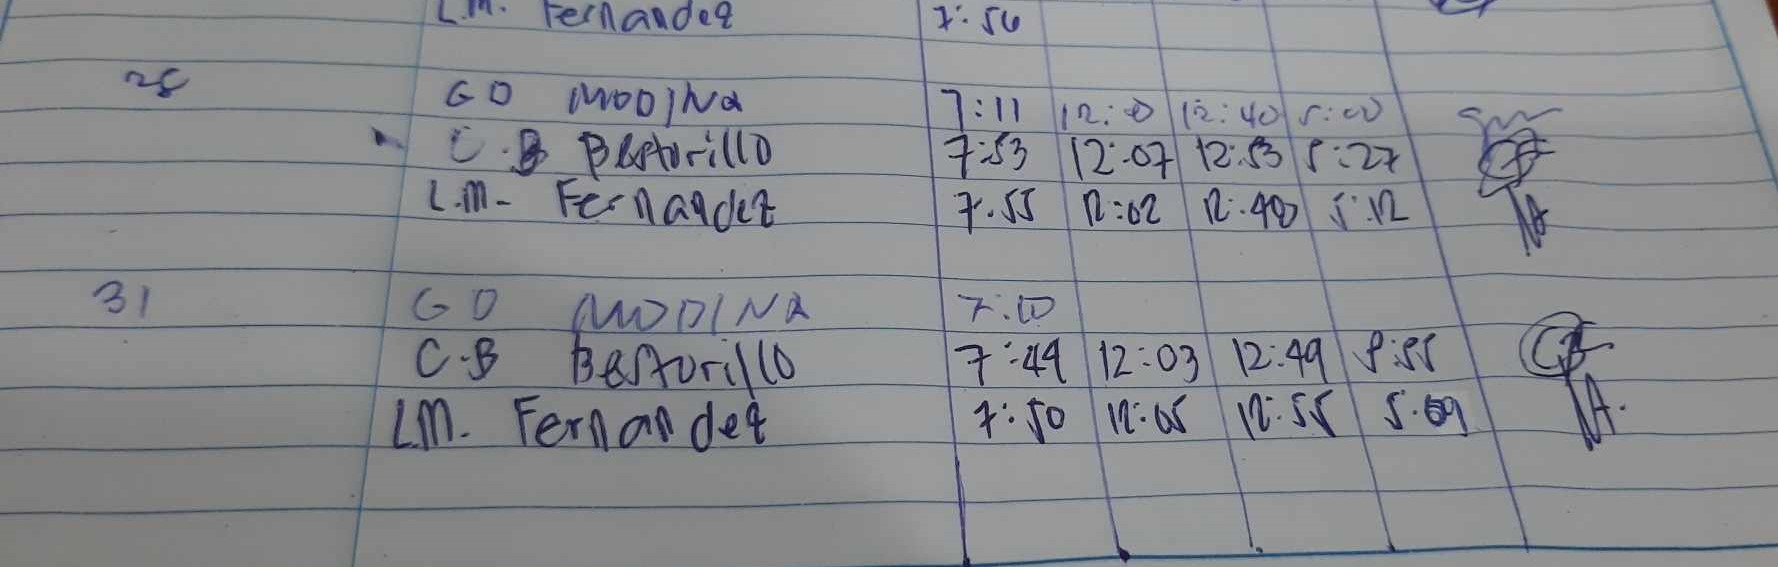 L.M. Fernandez 7:56
28 GD MODINA 7:11 12:00 12:40 5:00
C.B Bestorillo 7:53 12:07 12:53 5:27
L.M- Fernandez 7.55 12:02 12.40 5:12
31 GD MODINA 7:10
C.B Bestorillo 7:49 12:03 12:49 5:55
LM. Fernandez 7:50 12:05 12:55 5.09